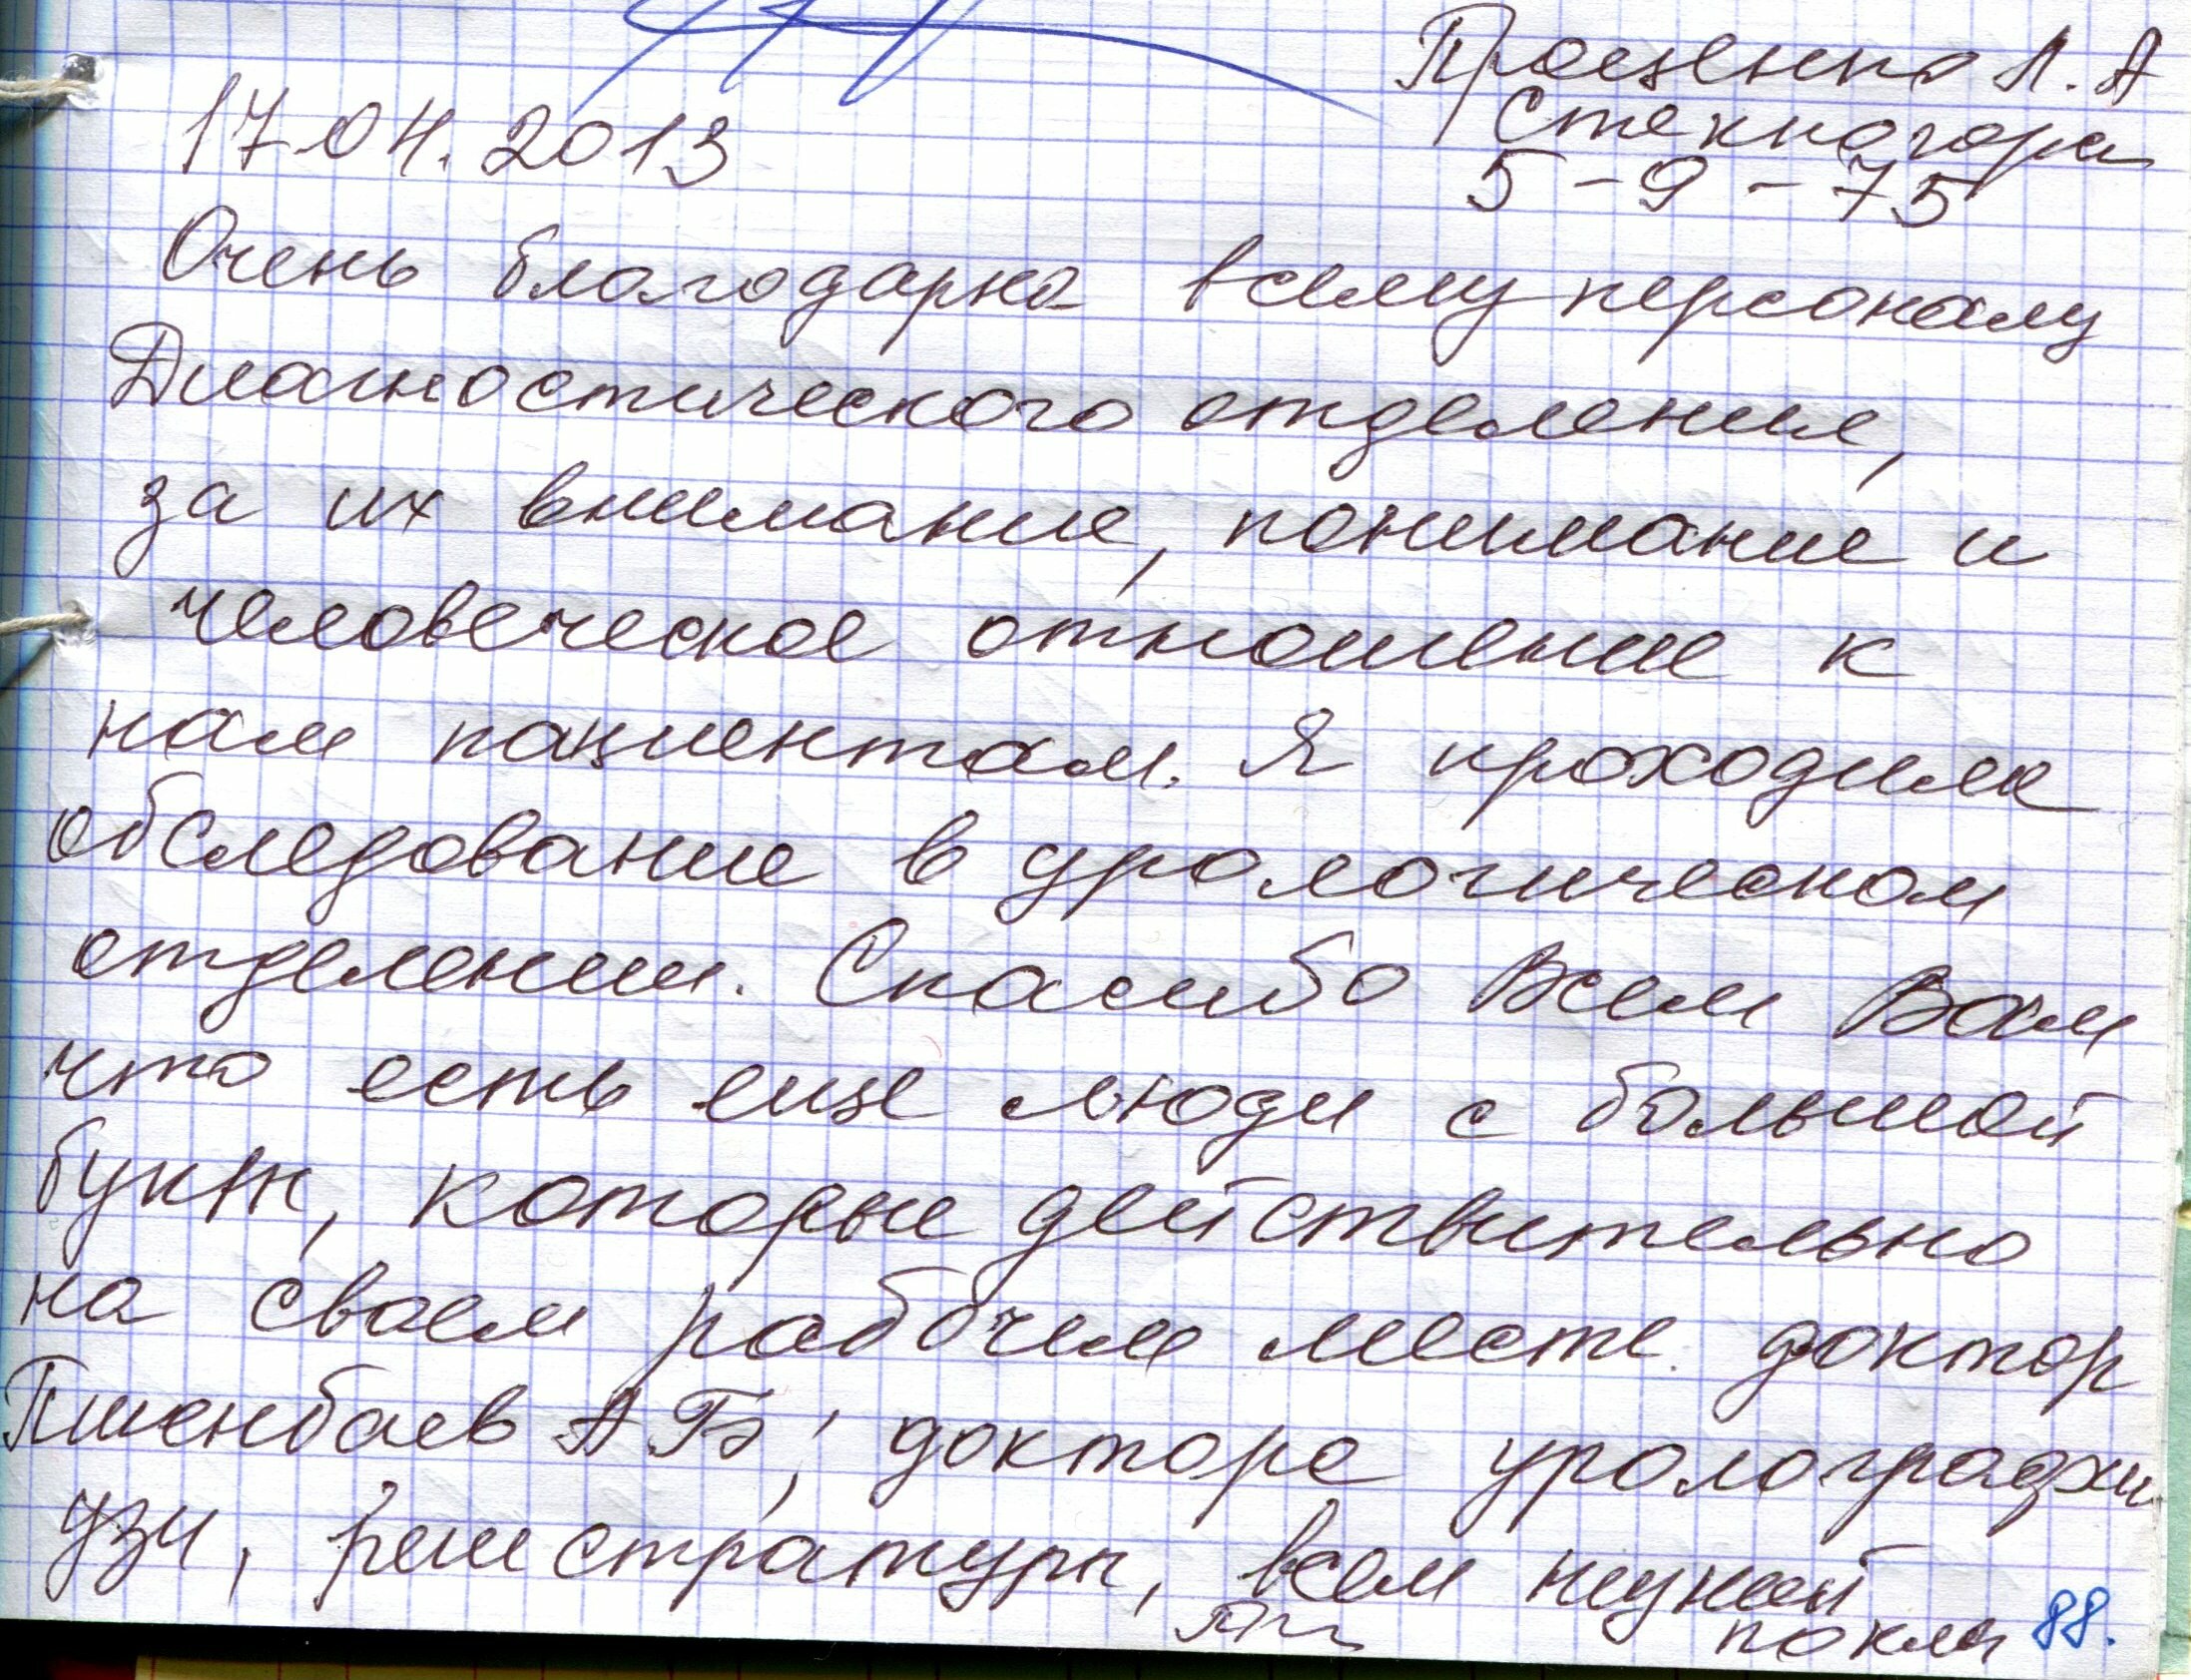 Проценко Л. А
17.04.2013
Степногорск
5-9-75
Очень благодарна всему персоналу
Диагностического отделения,
за их внимание, понимание и
человеческое отношение к
нам пациентам. Я проходила
обследование в урологическом
отделении. Спасибо Всем Вам
что есть еще люди с большой
буквы, которые действительно
на своем рабочем месте. доктор
Пшенбаев А Б, доктора
узи, регистратуры, всем низкий
поклон 88.